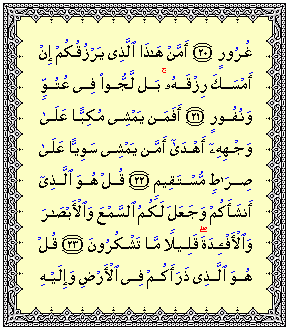 غُرُورٍ ﴿٢٠﴾ أَمَّنْ هَٰذَا ٱلَّذِى يَرْزُقُكُمْ إِنْ
أَمْسَكَ رِزْقَهُۥ ۚ بَل لَّجُّوا۟ فِى عُتُوٍّ
وَنُفُورٍ ﴿٢١﴾ أَفَمَن يَمْشِى مُكِبًّا عَلَىٰ
وَجْهِهِۦٓ أَهْدَىٰٓ أَمَّن يَمْشِى سَوِيًّا عَلَىٰ
صِرَٰطٍ مُّسْتَقِيمٍ ﴿٢٢﴾ قُلْ هُوَ ٱلَّذِىٓ
أَنشَأَكُمْ وَجَعَلَ لَكُمُ ٱلسَّمْعَ وَٱلْأَبْصَٰرَ
وَٱلْأَفْـِٔدَةَ ۖ قَلِيلًا مَّا تَشْكُرُونَ ﴿٢٣﴾ قُلْ
هُوَ ٱلَّذِى ذَرَأَكُمْ فِى ٱلْأَرْضِ وَإِلَيْهِ